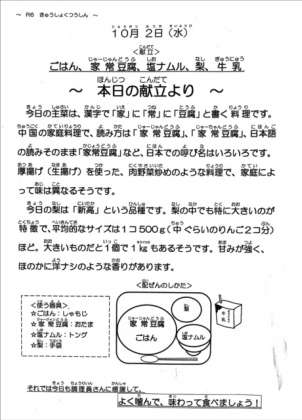 ～ R6 きゅうしょくつうしん ～
10月 2日(水)
<献立>
ごはん、家常豆腐、塩ナムル、梨、牛乳
～ 本日の献立より ～
今日の主菜は、漢字で「家」に「常」に「豆腐」と書く料理です。
中国の家庭料理で、読み方は「家常豆腐」、「家常豆腐」、日本語
の読みそのまま「家常豆腐」など、日本での呼び名はいろいろです。
厚揚げ(生揚げ)を使った、肉野菜炒めのような料理で、家庭によ
って味は異なるそうです。
今日の梨は「新高」という品種です。梨の中でも特に大きいのが
特徴で、平均的なサイズは1コ500g(中ぐらいのりんご2コ分)
ほど。大きいものだと1個で1kgもあるそうです。甘みが強く、
ほのかに洋ナシのような香りがあります。
<使う器具>
☆ごはん:しゃもじ
☆家常豆腐:おたま
☆塩ナムル:トング
☆梨:手袋
<配ぜんのしかた>
梨
家常豆腐
ごはん
塩ナムル
それでは今日も調理員さんに感謝して、
よく噛んで、味わって食べましょう!